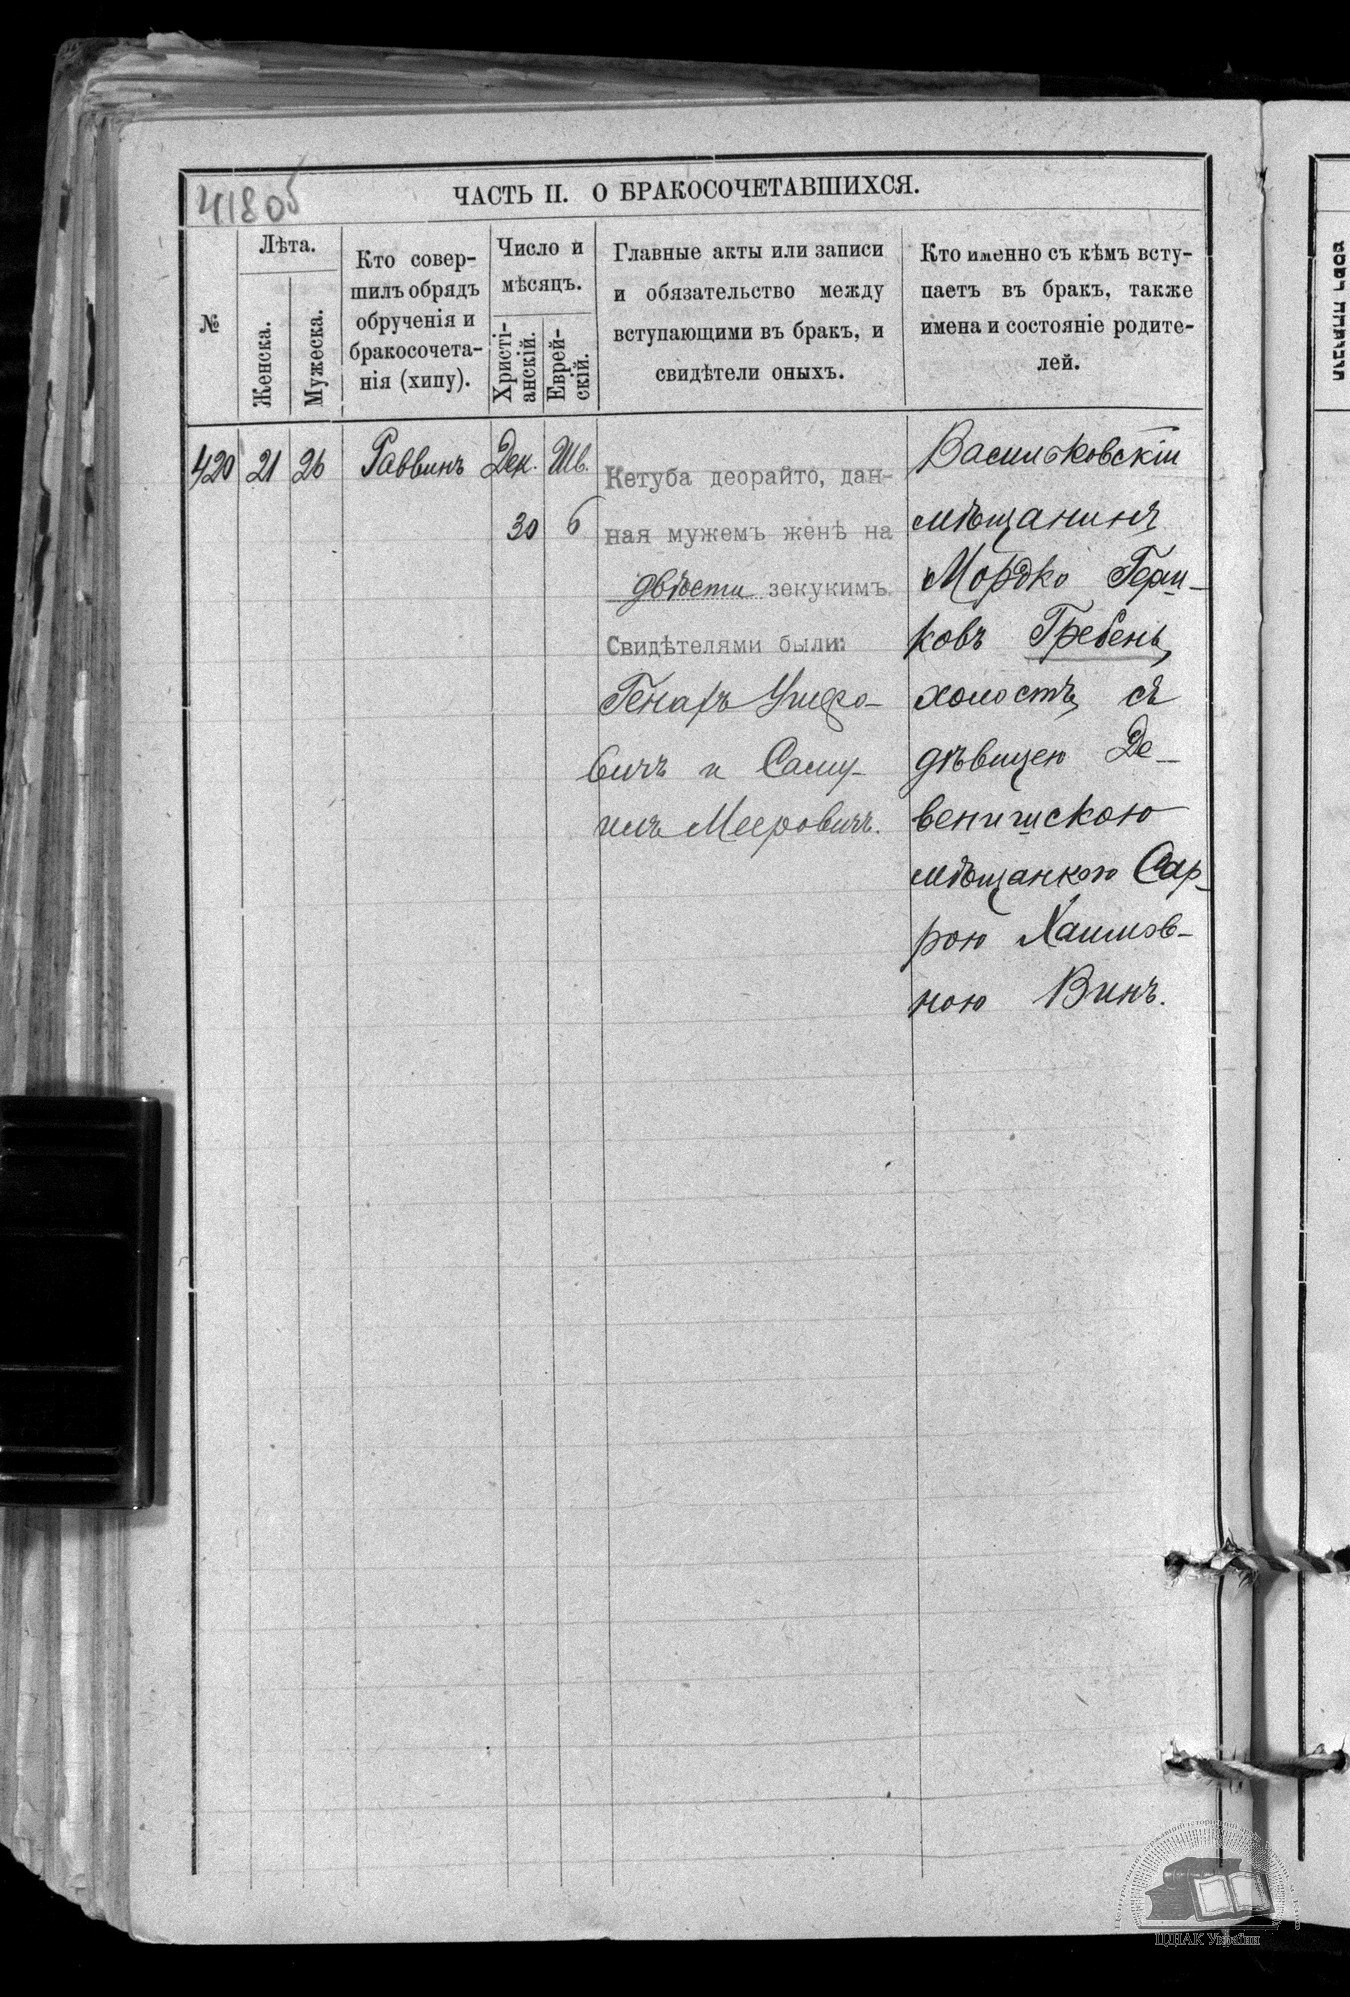 41805
ЧАСТЬ II. О БРАКОСОЧЕТАВШИХСЯ.
№
Лѣта.
Женска.
Мужеска.
Кто совер-
шилъ обрядъ
обрученія и
бракосочета-
нія (хипу).
Число и
мѣсяцъ.
Христі-
анскій.
Еврей-
скій.
Главные акты или записи
и обязательство между
вступающими въ бракъ, и
свидѣтели оныхъ.
Кто именно съ кѣмъ всту-
паетъ въ бракъ, также
имена и состояніе родите-
лей.
420
21
26
Раввинъ
Дек.
30
Шв.
6
Кетуба деорайто, дан-
ная мужемъ женѣ на
двѣсти зекукимъ.
Свидѣтелями были:
вичъ и Саму-
илъ Мееровичъ.
Васильковскій
мѣщанинъ
Мордко Герш-
ковъ Гребень,
холостъ, съ
дѣвицею Де-
венишскою
мѣщанкою Сар-
рою Хаимов-
ною Винъ.
ЦДІАК України